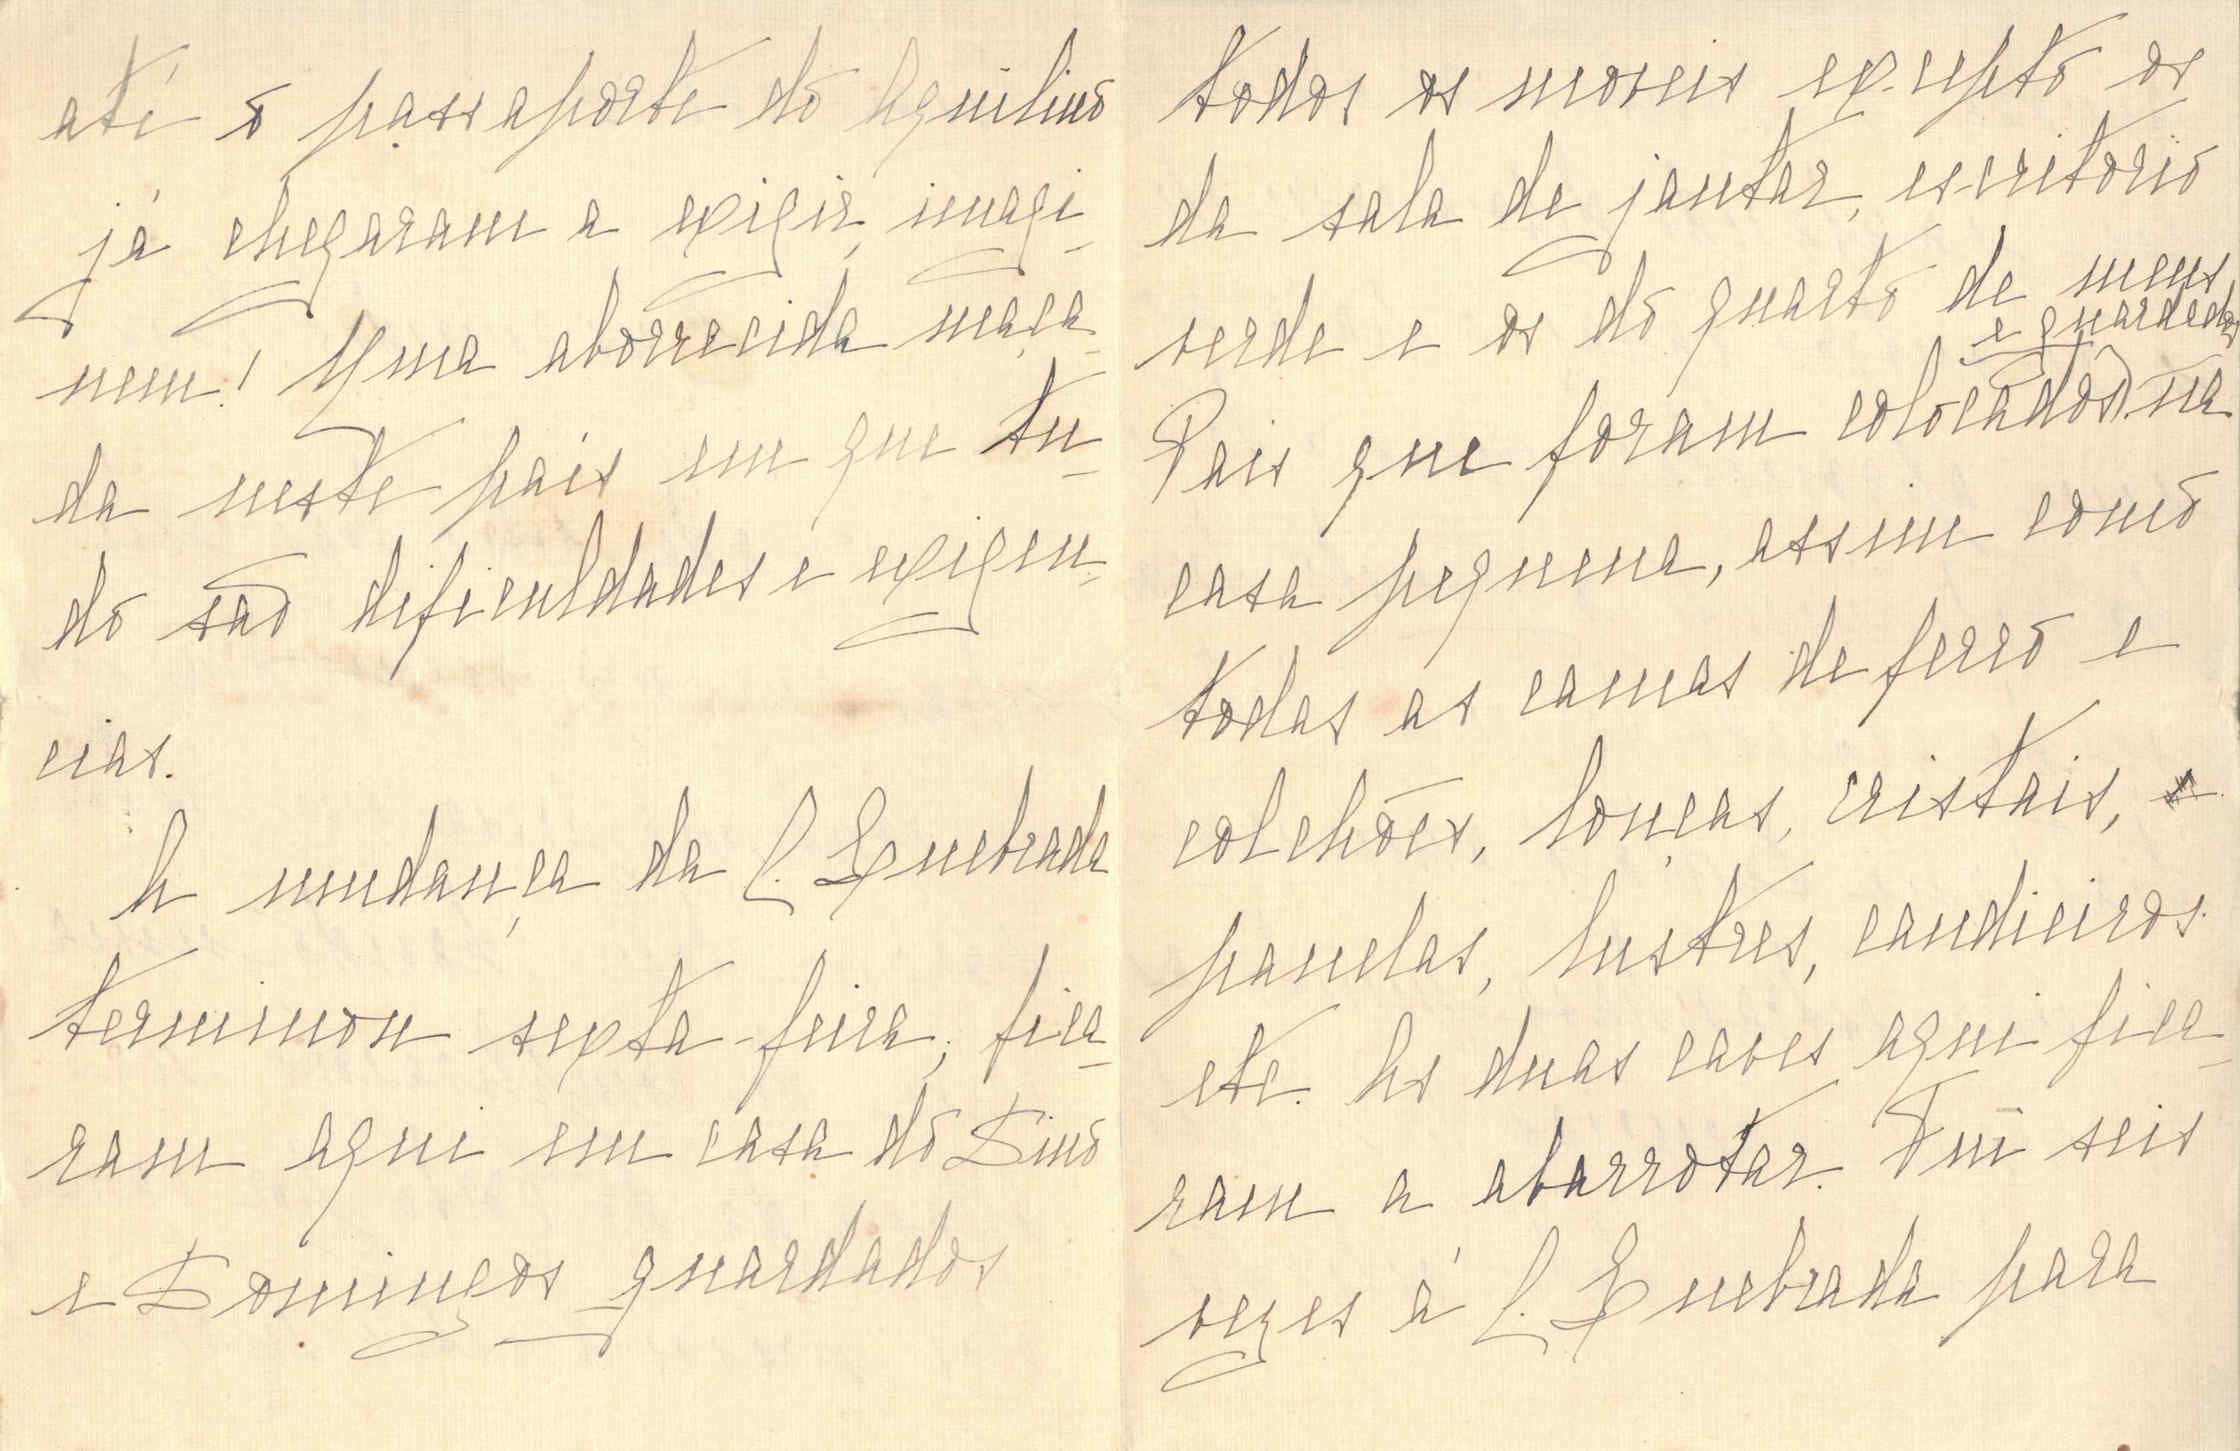 até o passaporte do Aquilino
já chegaram a exigir, imagi-
nem! Uma aborrecida maça-
da neste país em que tu-
do são dificuldades e exigen-
cias.
A mudança da C. Quebrada
terminou sexta-feira; fica-
ram aqui em casa do Dino
e Domingos guardados
todos os moveis excepto os
da sala de jantar, escritorio
verde e os do quarto de meus
e guardados
Pais que foram colocados na
casa pequena, assim como
todas as camas de ferro e
colchões, louças, cristais,
panelas, lustres, candieiros
etc. As duas caves aqui fica-
ram a abarrotar. Fui seis
vezes á C. Quebrada para